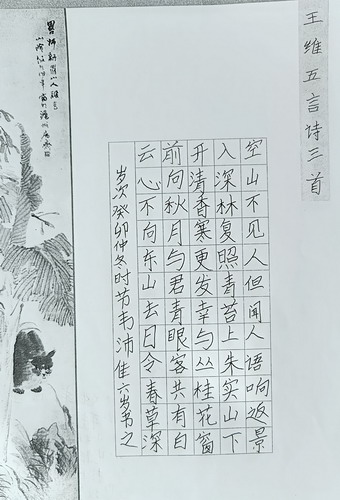 王维五言诗三首
空山不见人但闻人语响返景
入深林复照青苔上朱实山下
开清香寒更发幸与丛桂花窗
前向秋月与君青眼客共有白
云心不向东山去日令春草深
岁次癸卯仲冬时节韦沛佳六岁书之